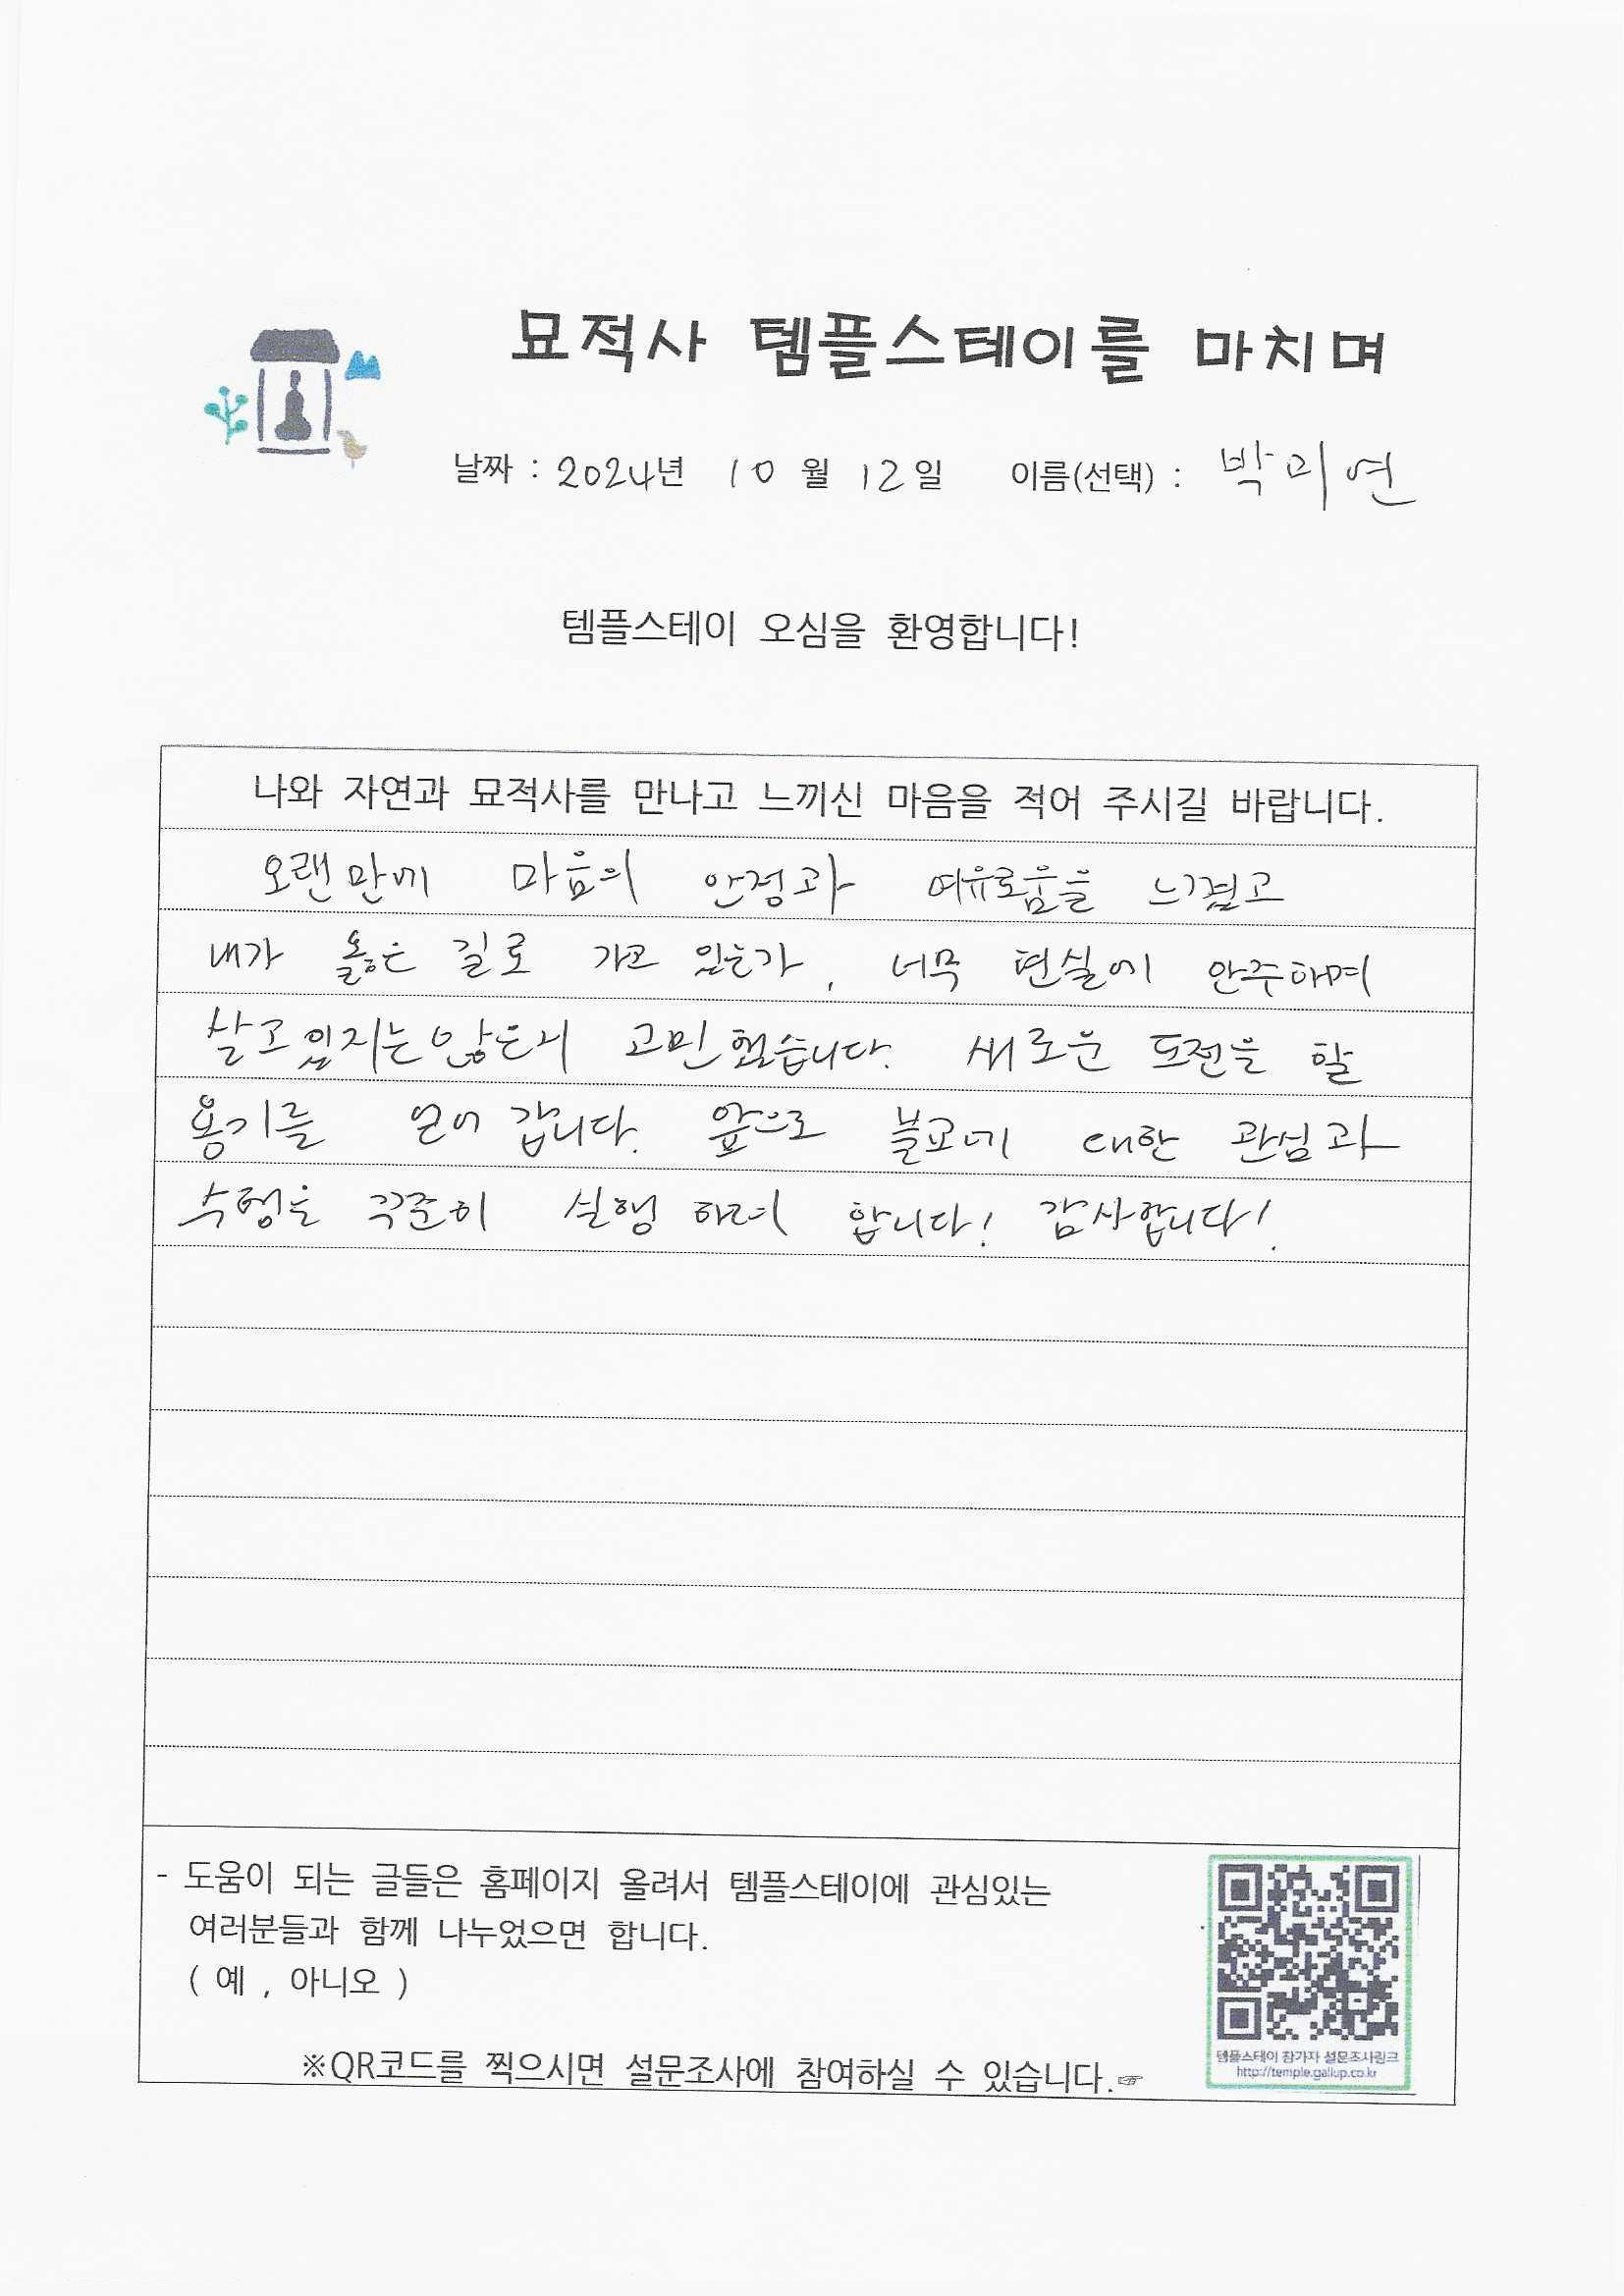 묘적사 템플스테이를 마치며
날짜 : 2024년 10월 12일 이름(선택) : 박미연
템플스테이 오심을 환영합니다!
나와 자연과 묘적사를 만나고 느끼신 마음을 적어 주시길 바랍니다.
오랜만에 마음의 안정과 여유로움을 느꼈고
내가 옳은 길로 가고 있는가, 너무 현실에 안주하며
살고있지는않은지 고민했습니다. 새로운 도전을 할
용기를 얻어 갑니다. 앞으로 불교에 대한 관심과
수행을 꾸준히 실행 하려 합니다! 감사합니다!
- 도움이 되는 글들은 홈페이지 올려서 템플스테이에 관심있는
여러분들과 함께 나누었으면 합니다.
( 예 , 아니오 )
※QR코드를 찍으시면 설문조사에 참여하실 수 있습니다.☞
템플스테이 참가자 설문조사링크
http://temple.gallup.co.kr